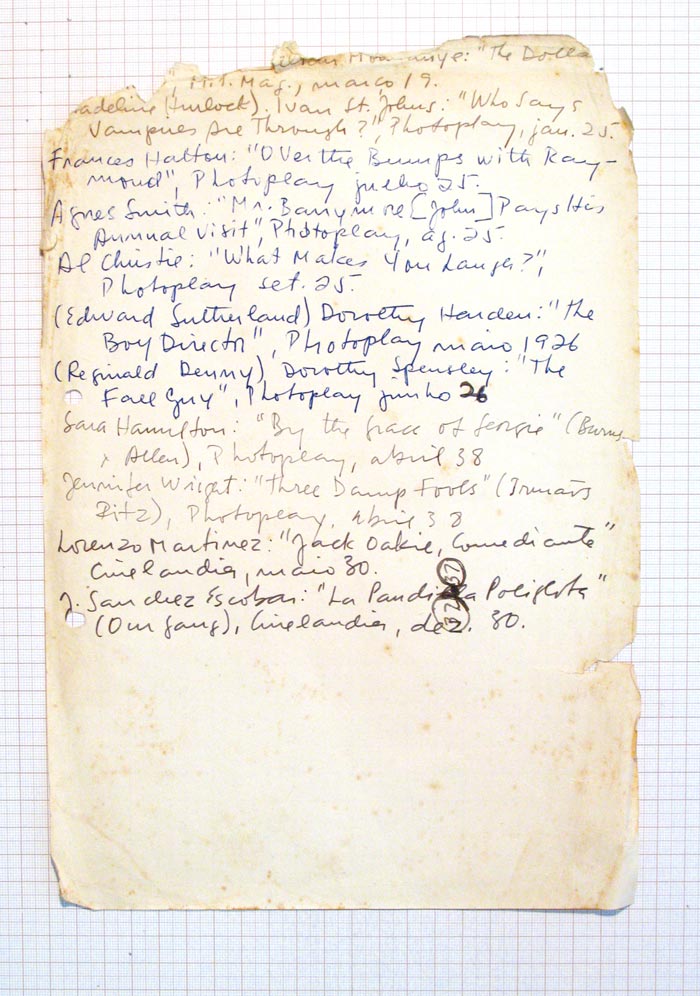 "The Dolla
", M.P. Mag., março 19.
adeline Hurlock). Ivan St. Johns: "Who Says
Vampires Are Through?", Photoplay, jan. 25.
Frances Halton: "Over the Bumps with Ray-
mond", Photoplay junho 25.
Agnes Smith: "Mr. Barrymore [John] Pays His
Annual Visit", Photoplay, ag. 25.
Al Christie: "What Makes You Laugh?",
Photoplay set. 25.
(Edward Sutherland) Dorothy Harden: "The
Boy Director", Photoplay maio 1926
(Reginald Denny) Dorothy Spensley: "The
Fall Guy", Photoplay junho 26
Sara Hamilton: "By the grace of Georgie" (Burns
x Allen), Photoplay, abril 38
Jennifer Wright: "Three Damp Fools" (Irmãos
Ritz), Photoplay, abril 38
Lorenzo Martinez: "Jack Oakie, Comediante"
Cinelandia, maio 30.
J. Sanchez Escobar: "La Pandilla Poliglota"
(Our Gang), Cinelandia, dez. 30.